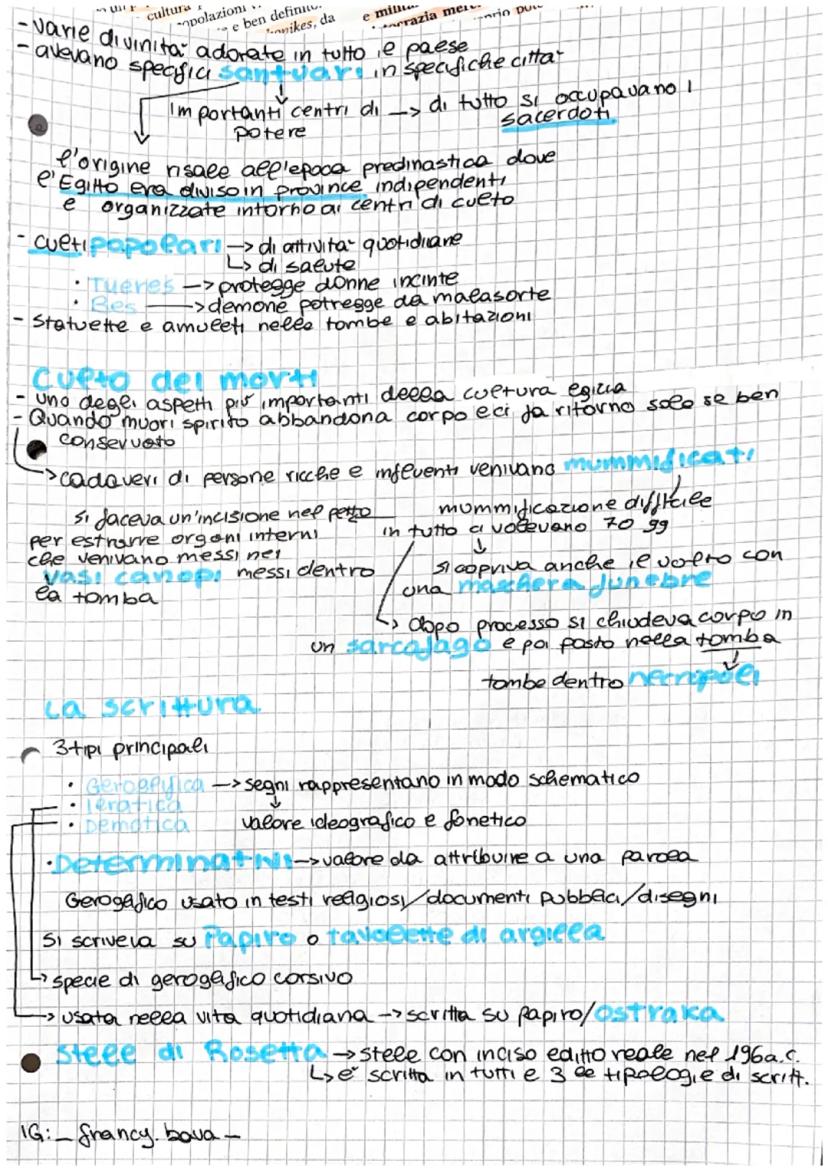 cultura
opolazioni
e ben definito
onikes, da
e milita
ocrazia mer
- varie divinità adorate in tutto il paese
- avevano specifici santuari in specifiche città
importanti centri di potere -> di tutto si occupavano i sacerdoti
l'origine risale all'epoca predinastica dove
l'Egitto era diviso in province indipendenti
e organizzate intorno ai centri di culto
- culti popolari -> di attività quotidiane
↳ di salute
• Tueres -> protegge donne incinte
• Bes -> demone potregge da malasorte
- Statuette e amuleti nelle tombe e abitazioni
Culto dei morti
- uno degli aspetti più importanti della cultura egizia
- Quando muori spirito abbandona corpo e ci fa ritorno solo se ben
conservato
-> cadaveri di persone ricche e influenti venivano mummificati
si faceva un'incisione nel petto
per estrarre organi interni
che venivano messi nei
vasi canopi messi dentro
la tomba
mummificazione difficile
in tutto ci volevano 70 gg
si copriva anche il volto con
una maschera funebre
↳ dopo processo si chiudeva corpo in
un sarcofago e poi posto nella tomba
tombe dentro necropoli
La scrittura
3 tipi principali
• Geroglifica -> segni rappresentano in modo schematico
• Ieratica
• Demotica valore ideografico e fonetico
• Determinativi -> valore da attribuire a una parola
Geroglifico usato in testi religiosi/documenti pubblici/disegni
Si scriveva su Papiro o tavolette di argilla
↳ specie di geroglifico corsivo
-> usata nella vita quotidiana -> scritta su papiro/ostraka
Stele di Rosetta -> stele con inciso editto reale nel 196 a.c.
↳ è scritta in tutti e 3 le tipologie di scritt.
IG: _ francy.bova _